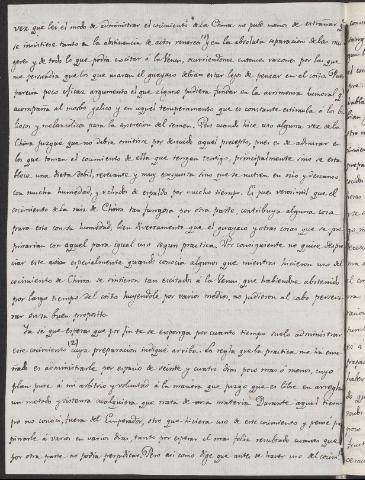 vez que leí el modo de administrar el cocimiento de la China, no pude menos de extrañar q.e
se insistiese tanto en la abstinencia de actos venereos (1) y en la absoluta separacion de las mu
geres y de todo lo que podia excitar á la Venus, ocurriendome entonces razones por las que
me persuadia que los que usaran el guayaco debian estar lejos de pensar en el coito. Pues
pareceria poco eficaz argumento el que alguno pudiera fundar en la acrimonia general que
acompaña al morbo galico y en aquel temperamento que es constante estimula á los bi
liosos y melancolicos para la excrecion del semen. Pero quando hice uso alguna vez de la
China juzgue que no debia omitirse por descuido aquel precepto, pues es de admirar en
los que toman el cocimiento de esta que tengan testigo, principalmente sino se esta
blece una dieta debil, resecante y muy exquisita sino que se nutren en ocio y descanso,
con mucha humedad, y echados de espaldas por mucho tiempo. Es pues verosimil que el
cocimiento de la raiz de China tan flatuoso por otra parte, contribuya alguna cosa
para esto con su humedad, bien diversamente que el guayaco y otras cosas que se pu
rificarian con aquel para igual uso segun practica. Por consiguiente no quise despre
ciar este aviso especialmente quando conocia algunos que mientras hicieron uso del
cocimiento de China se sintieron tan excitados á la Venus que habiendose abstenido
por largo tiempo del coito huyendole por varios medios, no pudieron al cabo perseve
rar en tan buen proposito.
Ya se que esperas que por fin te se exponga por cuanto tiempo suelo administrar
este cocimiento (2) cuya preparacion indique arriba. La regla que la practica me ha ense
ñado es administrarle por espacio de veinte y cuatro dias poco mas ó menos, cuyo
plan puse á mi arbitrio y voluntad á la manera que juzgo que es libre en arreglar
un metodo y sistema cualquiera que trata de otra materia. Durante aquel tiem
po no conocí, fuera del Emperador, otro que hiciera uso de este cocimiento y pense pro
pinarle á varios en varios dias, tanto por esperar el mas feliz resultado cuanto que
por otra parte no podia perjudicar. Pero asi como dige que antes se hacer uso del cocim.to